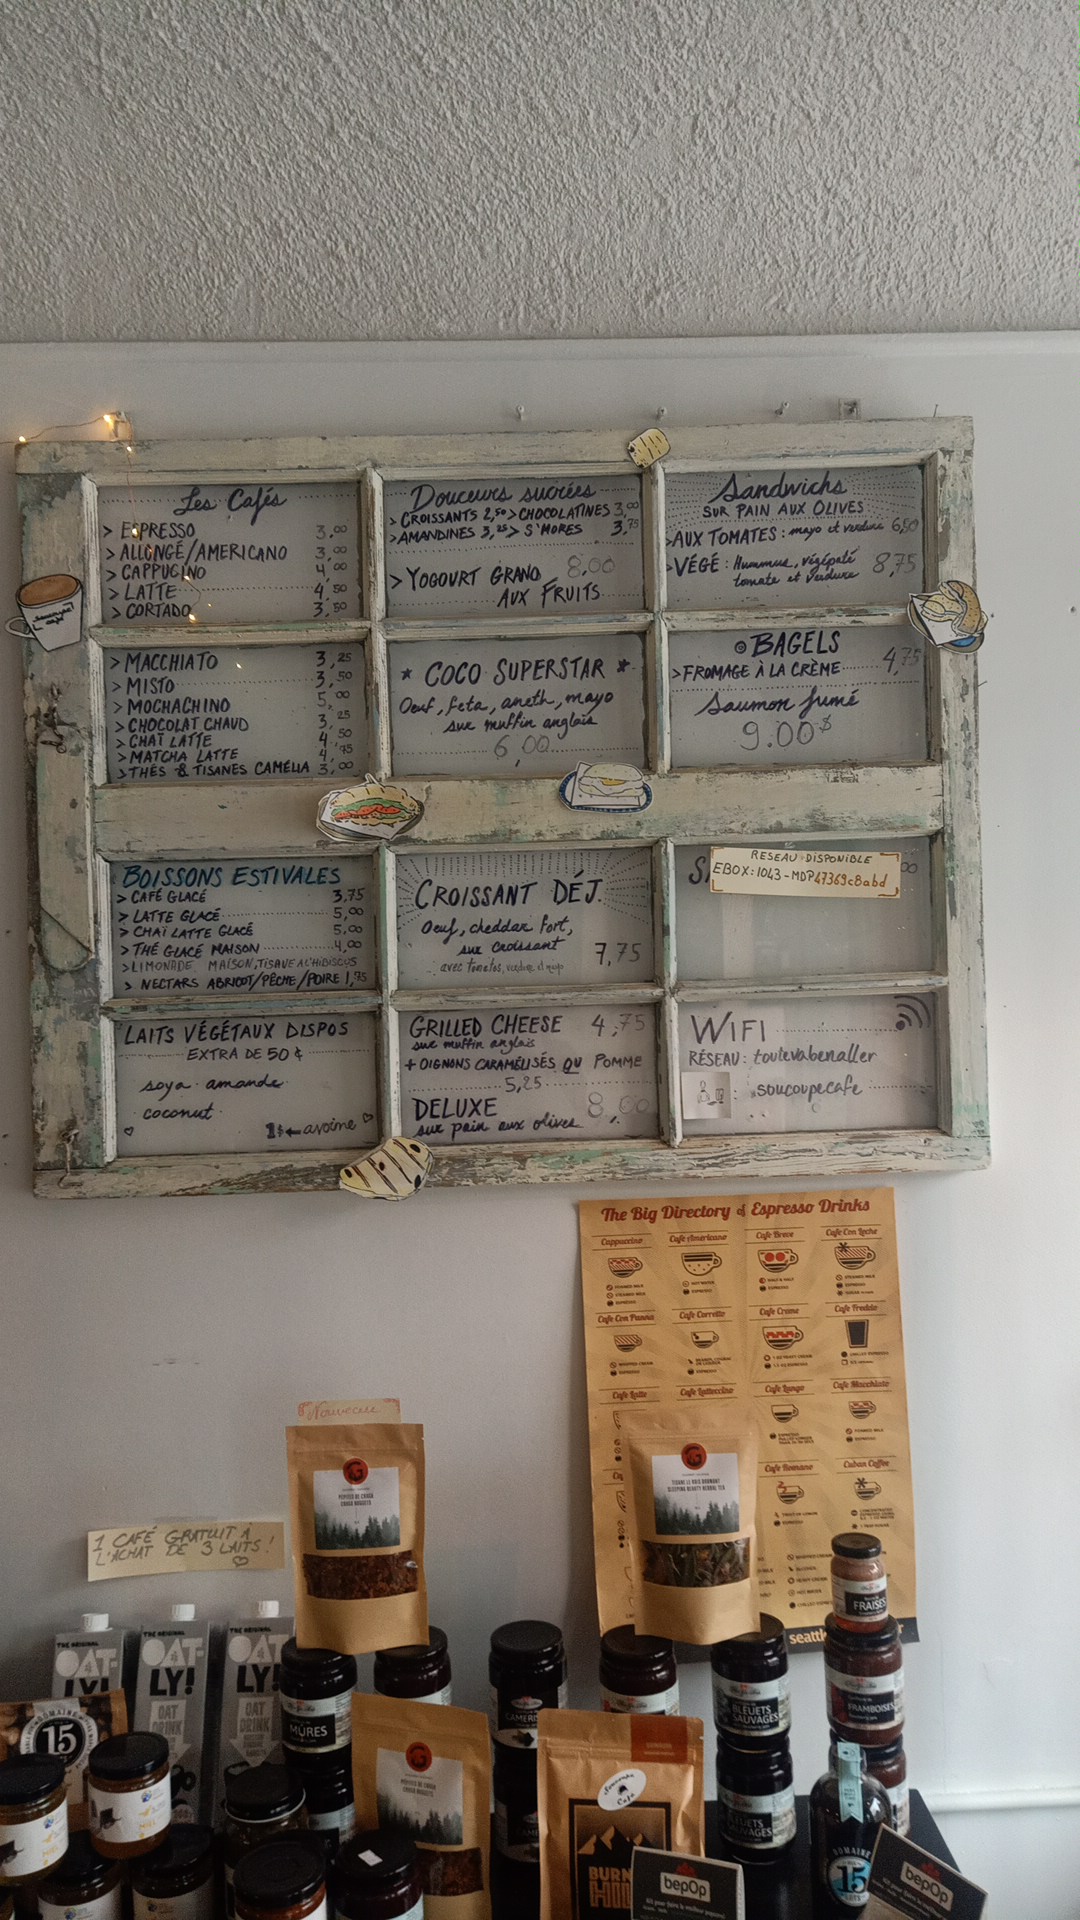 Les Cafés
> ESPRESSO 3,00
> ALLONGÉ/AMERICANO 3,00
> CAPPUCINO 4,00
> LATTE 4,50
> CORTADO 3,50
> MACCHIATO 3,25
> MISTO 3,50
> MOCHACHINO 5,00
> CHOCOLAT CHAUD 3,25
> CHAÏ LATTE 4,50
> MATCHA LATTE 4,75
> THÉS & TISANES CAMÉLIA 3,00
BOISSONS ESTIVALES
> CAFÉ GLACÉ 3,75
> LATTE GLACÉ 5,00
> CHAÏ LATTE GLACÉ 5,00
> THÉ GLACÉ MAISON 4,00
> LIMONADE MAISON, TISANE À L'HIBISCUS
> NECTARS ABRICOT/PÊCHE/POIRE 1,75
LAITS VÉGÉTAUX DISPOS
EXTRA DE 50 ¢
soya amande
coconut
1$ ← avoine
Douceurs sucrées
> CROISSANTS 2,50 > CHOCOLATINES 3,00
> AMANDINES 3,25 > S'MORES 3,75
> YOGOURT GRANO 8,00
AUX FRUITS
* COCO SUPERSTAR *
Oeuf, feta, aneth, mayo
sur muffin anglais
6,00
CROISSANT DÉJ.
Oeuf, cheddar fort,
sur croissant 7,75
avec tomates, verdure et mayo
GRILLED CHEESE 4,75
sur muffin anglais
+ OIGNONS CARAMÉLISÉS OU POMME
5,25
DELUXE 8,00
sur pain aux olives
Sandwichs
SUR PAIN AUX OLIVES
> AUX TOMATES : mayo et verdure 6,50
> VÉGÉ : Hummus, végépaté 8,75
tomate et verdure
BAGELS
> FROMAGE À LA CRÈME 4,75
Saumon fumé
9.00$
RESEAU DISPONIBLE
EBOX:1043-MDP47369c8abd
WIFI
RÉSEAU: toutevabenaller
: soucoupecafe
The Big Directory of Espresso Drinks
Cappuccino Cafe Americano Cafe Breve Cafe Con Leche
Cafe Con Panna Cafe Corretto Cafe Crema Cafe Freddo
Cafe Latte Cafe Lattecino Cafe Lungo Cafe Macchiato
Cafe Romano Cuban Coffee
seattle
Nouveau
PÉPITES DE CHAGA
CHAGA NUGGETS
TISANE LE BOIS DORMANT
SLEEPING BEAUTY HERBAL TEA
1 CAFÉ GRATUIT À
L'ACHAT DE 3 LAITS!
THE ORIGINAL
OAT-LY!
OAT DRINK
THE ORIGINAL
OAT-LY!
OAT DRINK
THE ORIGINAL
OAT-LY!
OAT DRINK
DOMAINE
15
MÛRES
BLEUETS SAUVAGES
FRAISES
FRAMBOISES
PÉPITES DE CHAGA
CHAGA NUGGETS
Soucoupe Café
BURN
HILL
bepOp
DOMAINE
15
bepOp